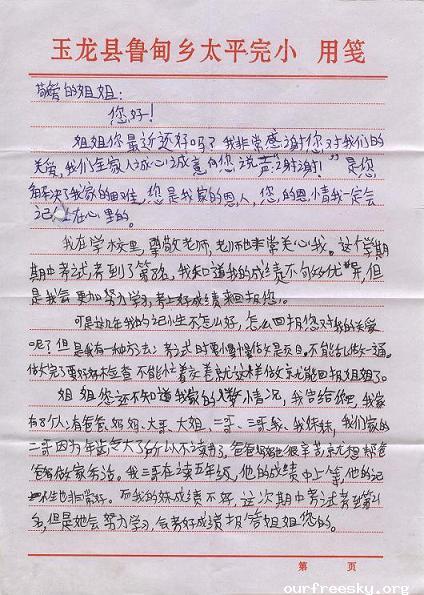 玉龙县鲁甸乡太平完小 用笺
敬爱的姐姐:
您好!
姐姐你最近还好吗?我非常感谢您对我们的
关爱,我们全家人诚心诚意向您说声“谢谢!”是您
解决了我家的困难,您是我家的恩人,您的恩情我一定会
记在心里的。
我在学校里,尊敬老师,老师也非常关心我。这个学期
期中考试,考到了第 名,我知道我的成绩不句好优异,但
是我会更加努力学习,考上好成绩来回报您。
可是这几年我的记 不怎么好,怎么回报您对我的关爱
呢?但是我有一种方法:考试时要小 做 题目,不能 做一通。
做完了要好好检查,不能忙着交卷就这样做 才能回报姐姐了。
姐姐您还不知道我家的 情况,我写给您吧,我家
有8个人:有爸爸、妈妈、大哥、大姐、二哥、三哥、我、你妹,我们家的
二哥因为年龄 大了所以不读书了,爸爸妈妈也很辛苦就想帮爸
爸爸做家务活。我三哥在读五年级,他的成绩中上等,他的记
性也非常好。而我的妹成绩不好,这次期中考试考到第21
名,但是她会努力学习,会考好成绩报答姐姐您的。
第 页
ourfreesky.org